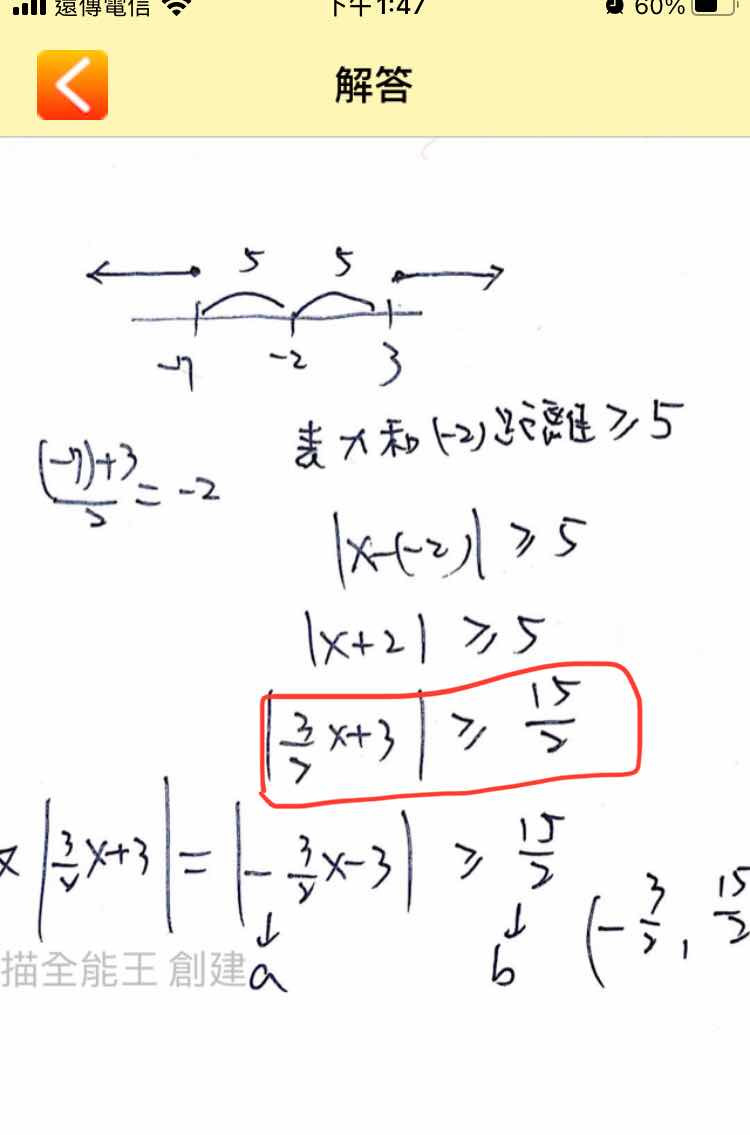 遠傳電信 下午1:47 60%
解答
5 5
-7 -2 3
表x和(-2)距離≥5
((-7)+3)/2 = -2
|x-(-2)| ≥ 5
|x+2| ≥ 5
|3/2 x+3| ≥ 15/2
|3/2 x+3| = |-3/2 x-3| ≥ 15/2
a b (-3/2, 15/2
描全能王 創建